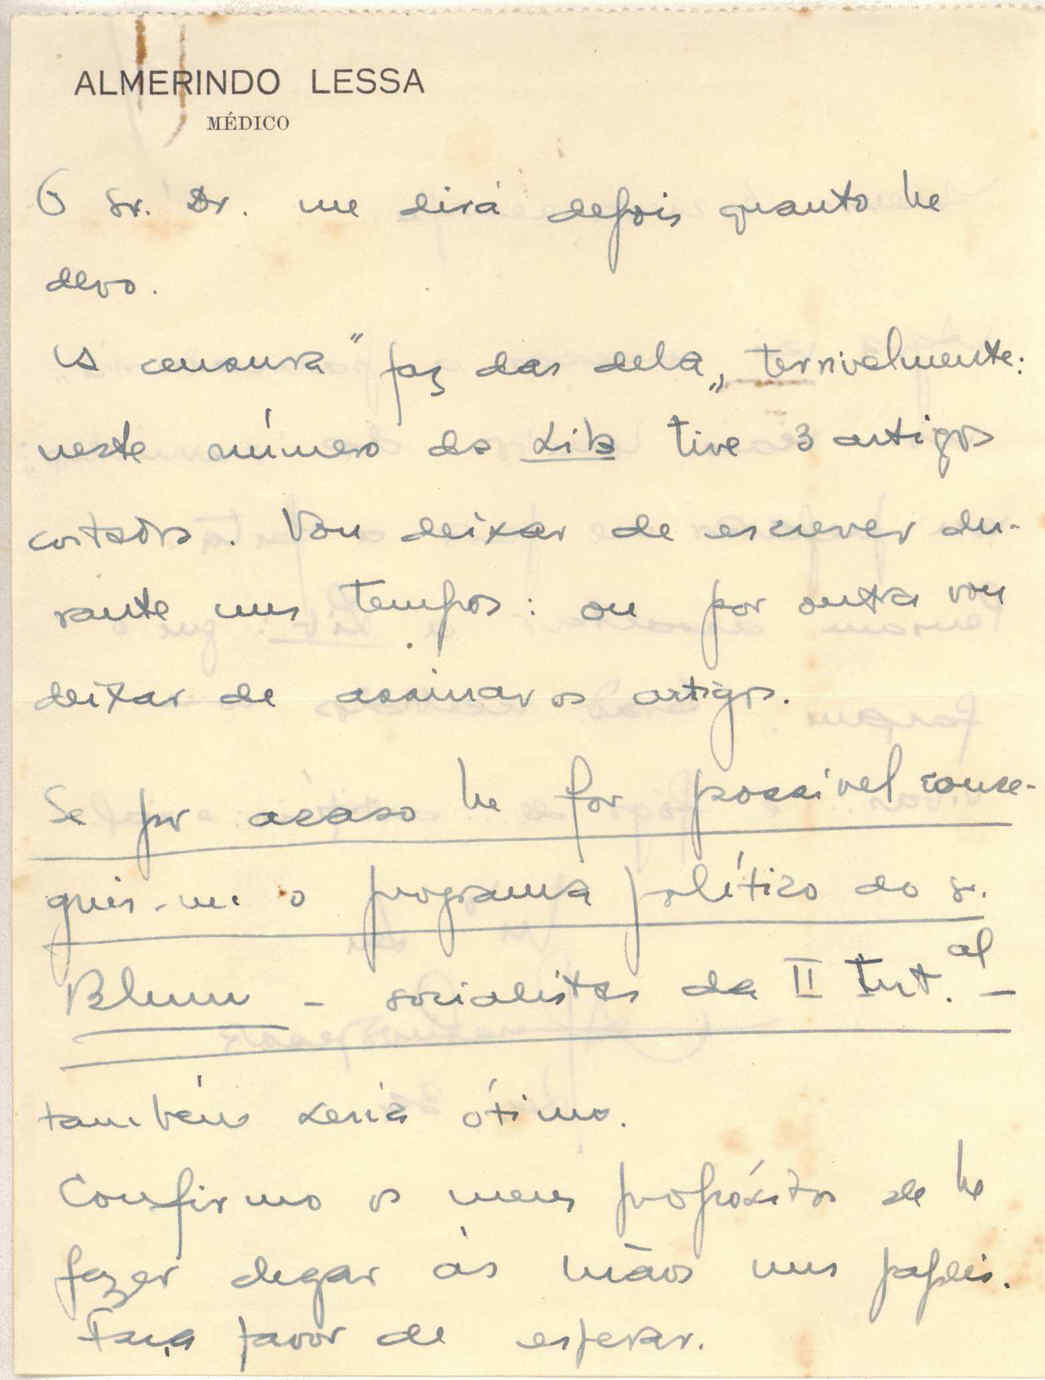 ALMERINDO LESSA
MÉDICO
O sr. Dr. me dirá depois quanto lhe
devo.
A censura "faz das dela„ terrivelmente:
neste número da Lib tive 3 artigos
cortados. Vou deixar de escrever du-
rante uns tempos: ou por outra vou
deixar de assinar os artigos.
Se por acaso lhe for possível conse-
guir-me o programa político do sr.
Blum – socialistas da II Int.al –
também seria ótimo.
Confirmo os meus propósitos de lhe
fazer chegar às mãos uns papéis.
Faça favor de esperar.